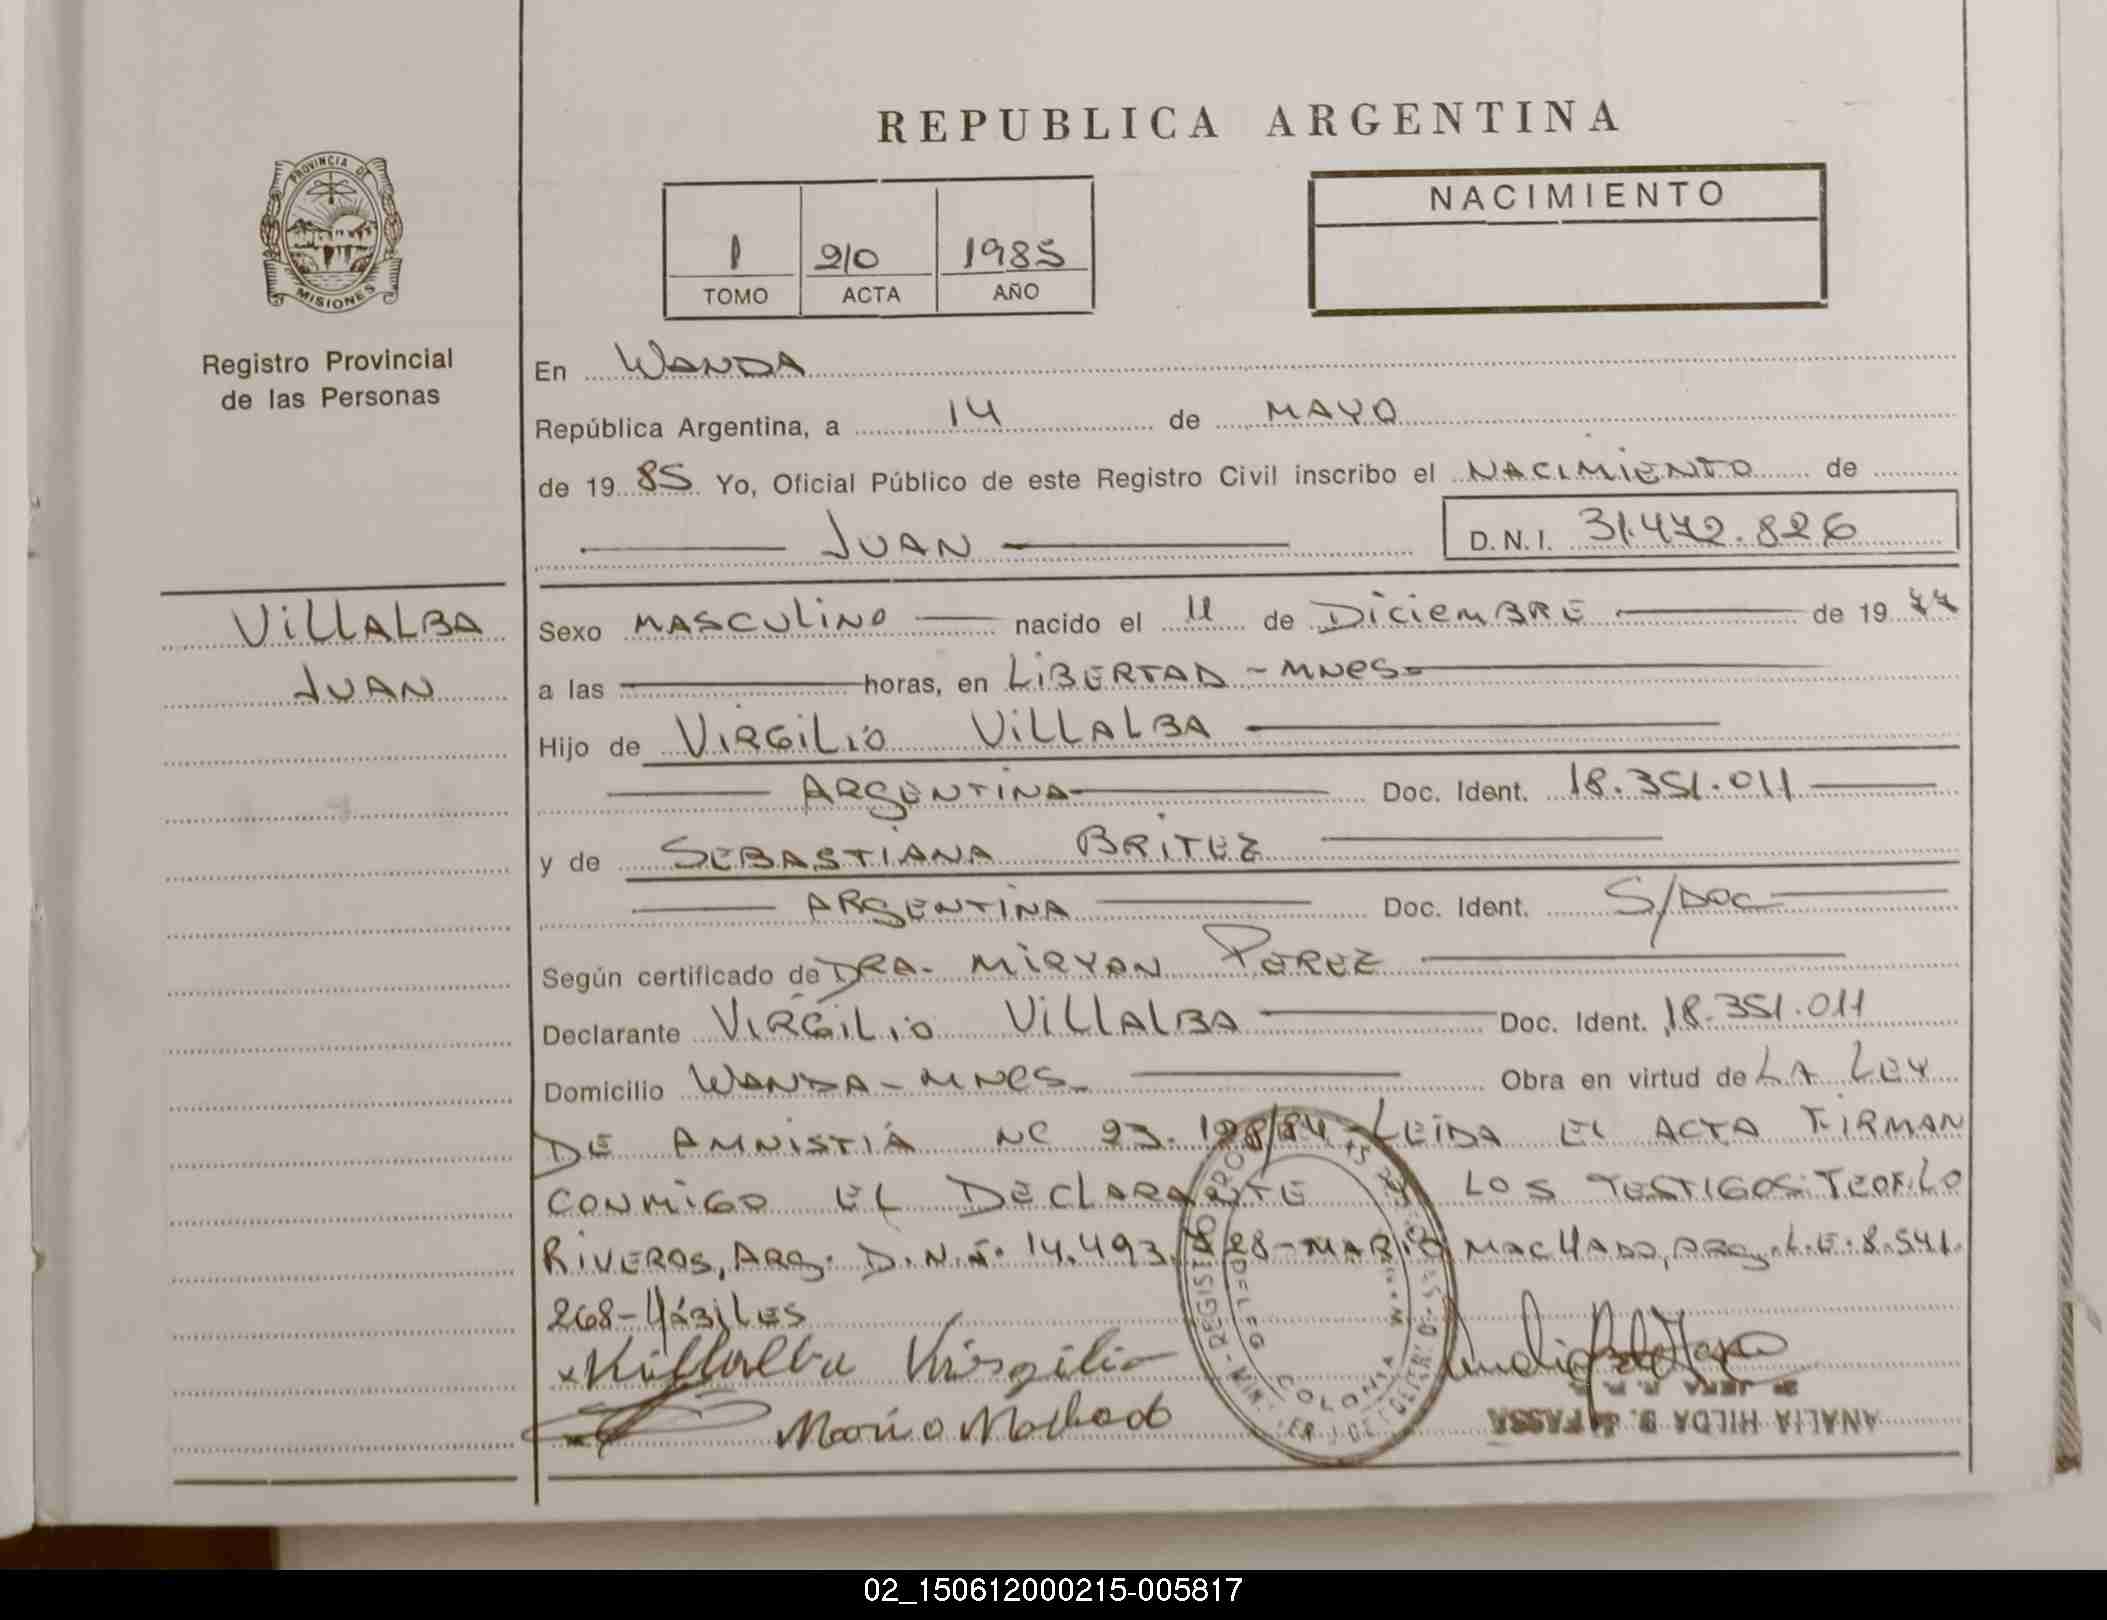 REPUBLICA ARGENTINA
PROVINCIA DE
MISIONES
Registro Provincial
de las Personas
1 210 1985
TOMO ACTA AÑO
NACIMIENTO
En WANDA
República Argentina, a 14 de MAYO
de 1985 Yo, Oficial Público de este Registro Civil inscribo el NACIMIENTO de
JUAN D.N.I. 31.472.826
VILLALBA
JUAN
Sexo MASCULINO nacido el 11 de DICIEMBRE de 1977
a las horas, en LIBERTAD - MNES-
Hijo de VIRGILIO VILLALBA
ARGENTINA Doc. Ident. 18.351.011
y de SEBASTIANA BRITEZ
ARGENTINA Doc. Ident. S/DOC
Según certificado de DRA. MIRYAN PEREZ
Declarante VIRGILIO VILLALBA Doc. Ident. 18.351.011
Domicilio WANDA - MNES- Obra en virtud de LA LEY
DE AMNISTIA Nº 23.128/84 - LEIDA EL ACTA FIRMAN
CONMIGO EL DECLARANTE Y LOS TESTIGOS: TEOFILO
RIVEROS, ARG. D.N.I. 14.493.828 - MARIO MACHADO, ARG. L.E. 8.541.
268 - HÁBILES
x Villalba Virgilio
Mario Machado
COLONIA
ANALIA HILDA B. de FASSA